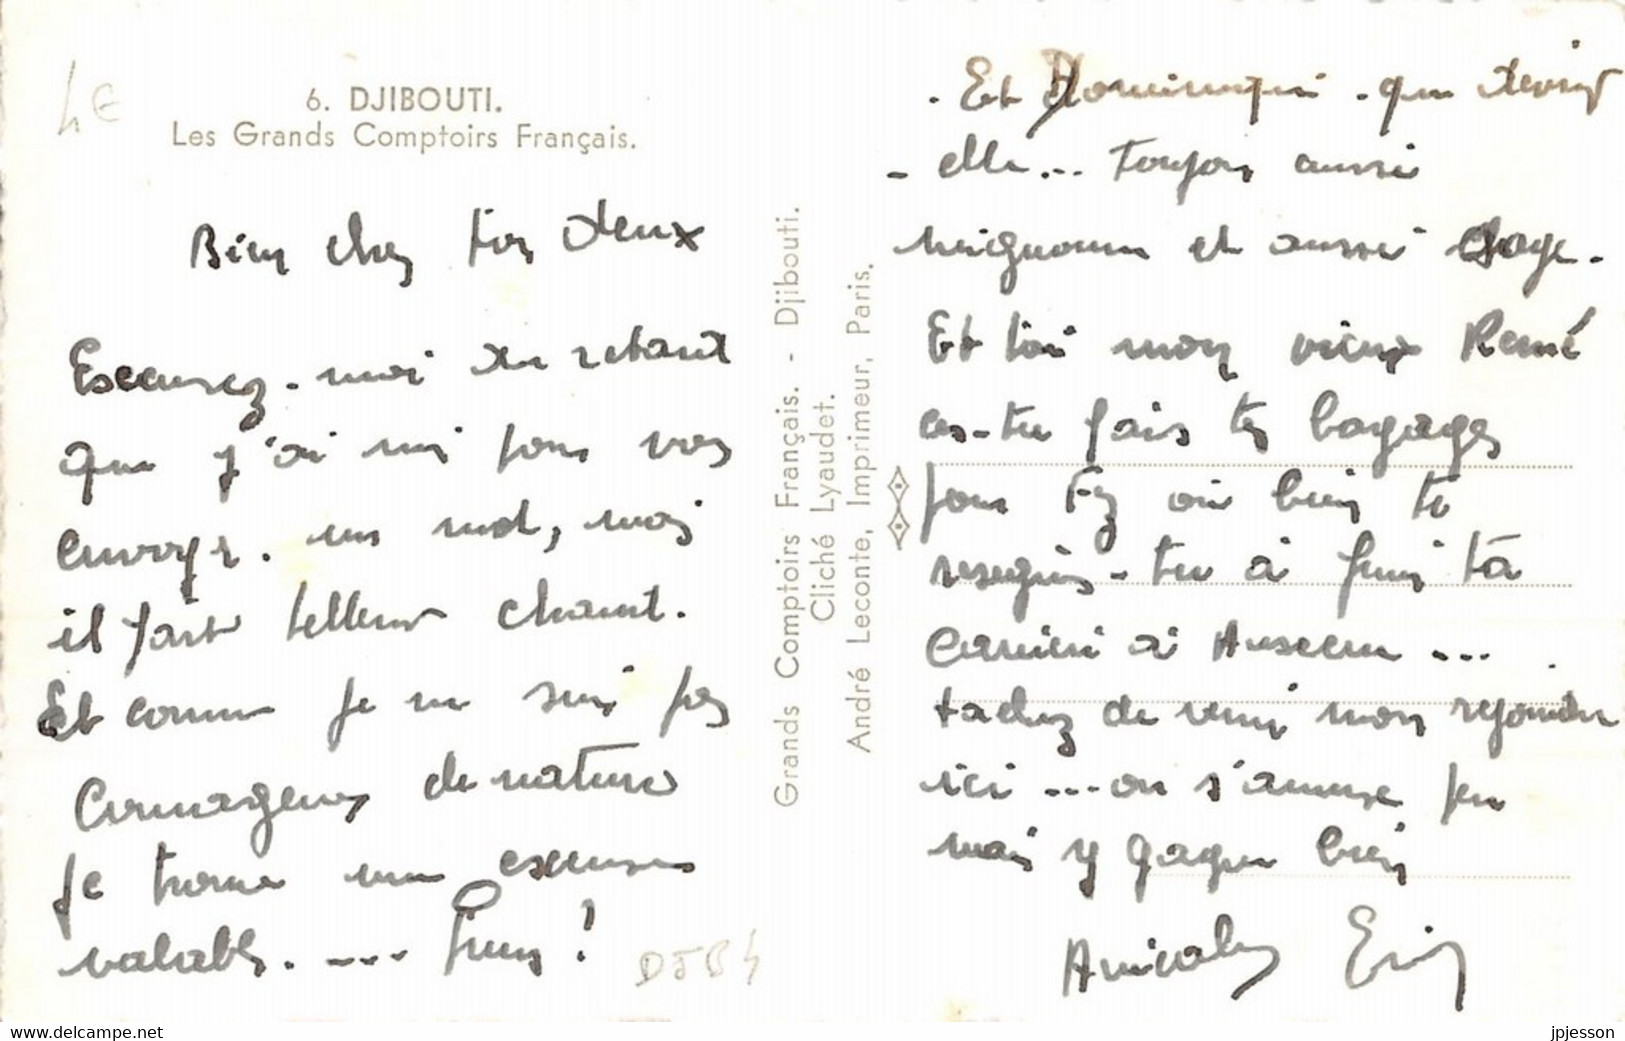 4€
6. DJIBOUTI.
Les Grands Comptoirs Français.
Bien chers tous deux
Excusez-moi du retard
que j'ai mis pour vous
envoyer. un mot, mais
il fait tellement chaud.
Et comme je ne suis pas
courageux de nature
je trouve une excuse
valable. ....
DJB4
Grands Comptoirs Français. - Djibouti.
Cliché Lyaudet.
André Leconte, Imprimeur, Paris.
. Et Dominique . que devient
- elle... Toujours aussi
mignonne et aussi sage.
Et toi mon vieux René
as-tu fais tes bagages
pour Fez ou bien te
résignes-tu à finir ta
carrière à
tachez de venir nous rejoindre
ici ... on s'amuse peu
mais y gagne bien
Amicales
www.delcampe.net
jpjesson